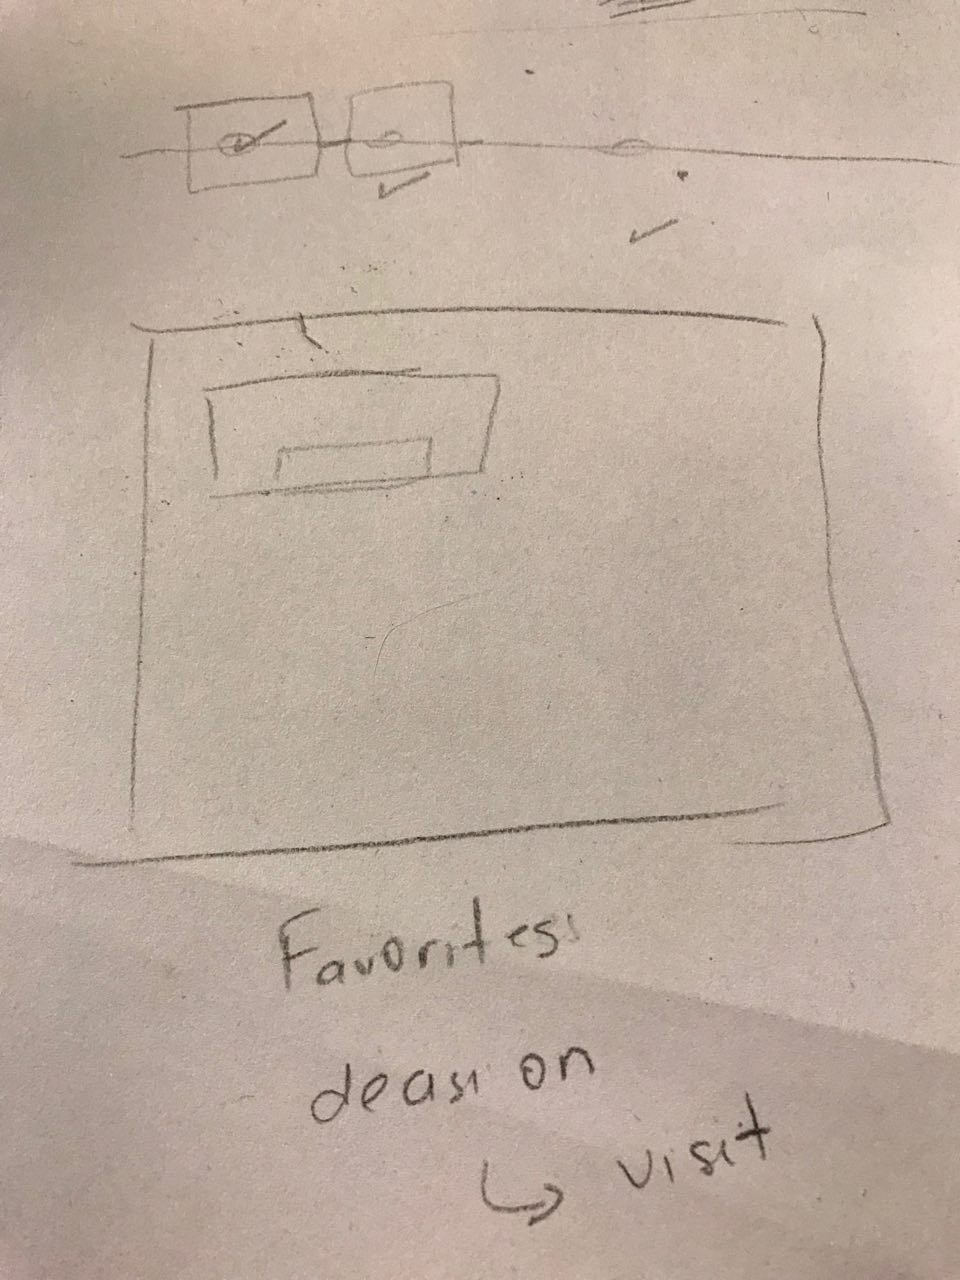 Favorites
decision
↳ visit